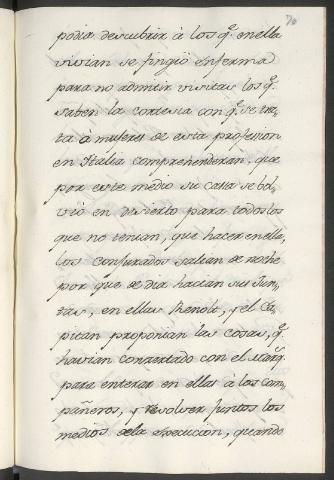 70
podia descubrir à los q.e en ella
vivian se fingiò enferma
para no admitir visitas los q.e
saben la cortesia con q.e se tra,
ta à mujeres de esta profession
en Italia comprehenderan, que
por este medio su cassa se bol,
viò en desierto para todos los
que no tenian, que hacer en ella,
los conjurados salian de noche
por que de dia hacian sus Jun,
tas, en ellas Renolt, y el Ca,
pitan proponian las cosas, q.e
havian conzertado con el Marq.s
para enterar en ellas à los com,
pañeros, y resolver juntos los
medios dela execucion, quando